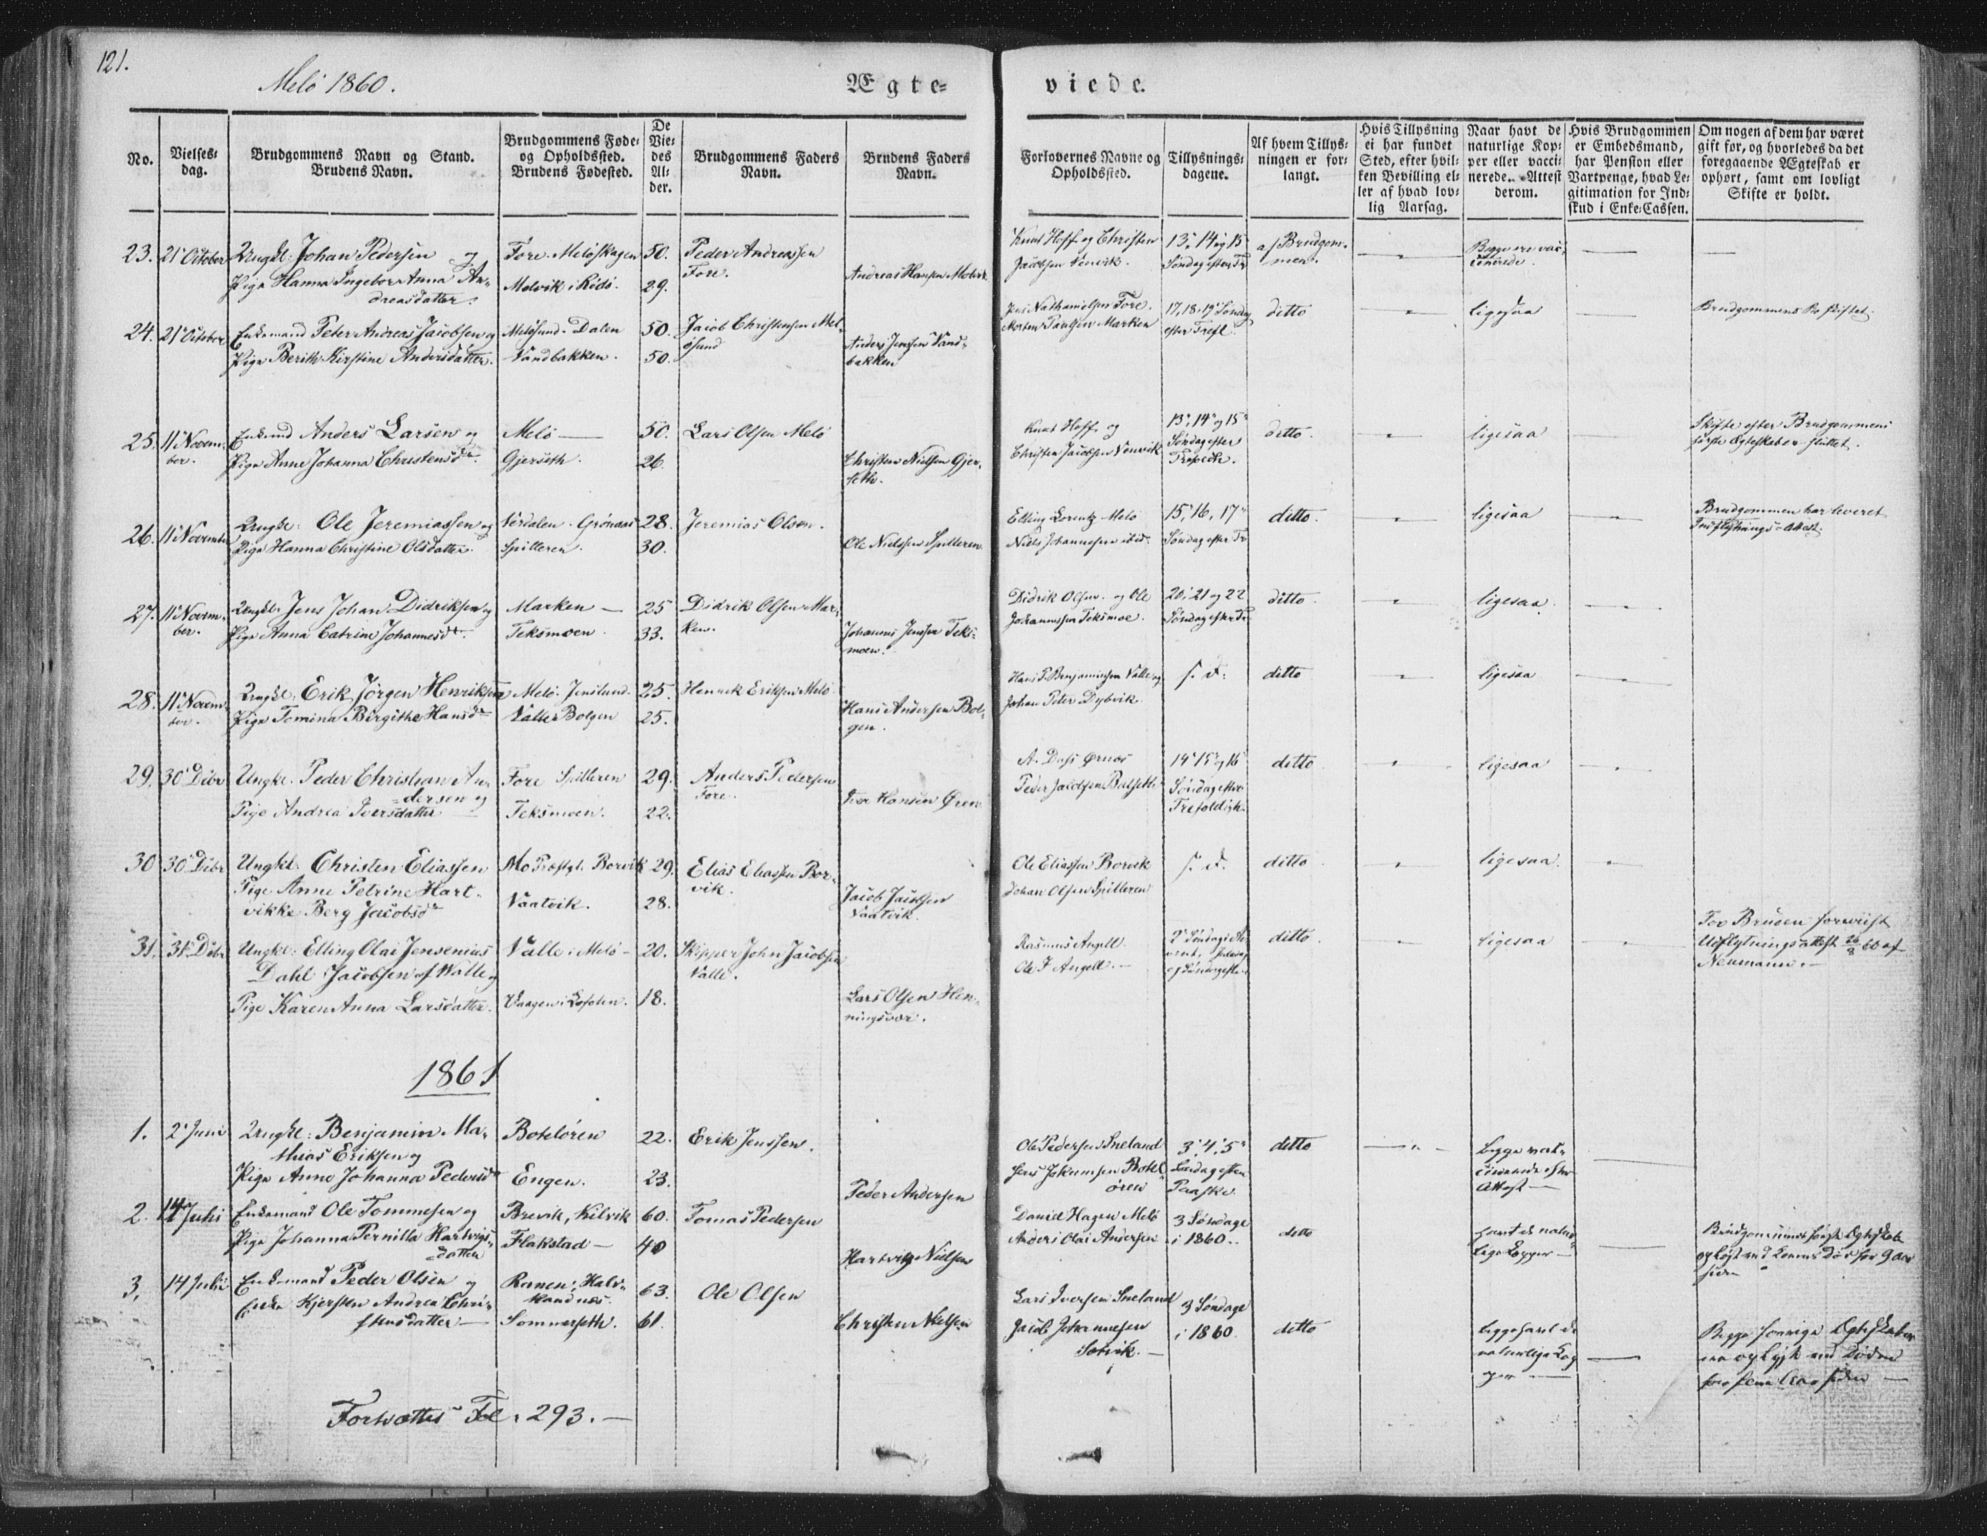 121.
Melö 1860.
Ægte=
viede.
No.
Vielses=
dag.
Brudgommens Navn og Stand.
Brudens Navn.
Brudgommens Føde=
og Opholdssted.
Brudens Fødested.
De
Vie=
des
Al=
der.
Brudgommens Faders
Navn.
Brudens Faders
Navn.
Forlovernes Navne og
Opholdssted.
Tillysnings=
dagene.
Af hvem Tillys=
ningen er for=
langt.
Hvis Tillysning
ei har fundet
Sted, efter hvil=
ken Bevilling el=
ler af hvad lov=
lig Aarsag.
Naar havt de
naturlige Kop=
per eller vacci=
nerede. Attest
derom.
Hvis Brudgommen
er Embedsmand,
har Pension eller
Vartpenge, hvad Le=
gitimation for Ind=
skud i Enke=Cassen.
Om nogen af dem har været
gift før, og hvorledes da det
foregaaende Ægteskab er
ophørt, samt om lovligt
Skifte er holdt.
23. 21 October Ungkl: Johan Pedersen og Fore. Melöskagen 50. Peder Andreassen
Fore.
Pige Hanna Ingebor Anna An=
dreasdatter. Melvik i Rödö. 29. Andreas Hansen
Knut Hoff og Christen
Jacobsen Venvik. 13, 14 og 15
Søndag efter Tr af Brudgom=
men. Begge ere vac=
cinerede.
24. 21 October Enkemand Peter Andreas Jacobsen og Melösund. Dalen 50. Jacob Christensen Mel=
ösund
Pige Berith Kirstine Andersdatter. Vandbakken. 50. Anders Jensen Vand=
bakken
Nathanielsen Fore.
Morten Paulsen Marken 17, 18, 19 Söndag
efter Trefl. ditto ligesaa Brudgommens Bo skiftet.
25. 11 Novem=
ber. Enkemd Anders Larsen og Melö 50. Lars Olsen Melö
Pige Anne Johanna Christensdr. Gjerseth. 26. Christen Nielsen Gjer=
seth.
Knut Hoff og
Christen Jacobsen Venvik 13, 14 og 15
Søndag efter
Trefold. ditto. ligesaa Skifte efter Brudgommens
første Ægteskab er sluttet.
26. 11 November Ungkl: Ole Jeremiassen og Værdalen. Grönaas 28. Jeremias Olsen.
Pige Hanna Christine Olsdatter. Spilleren. 30. Ole Nielsen Spilleren
Elling Lorentz Melö
Niels Johannesen ibid. 15, 16, 17
Søndag efter Tr ditto. ligesaa Brudgommen har leveret
Indflytnings-Attest.
27. 11 Novem=
ber. Ungkl. Jens Johan Didriksen og Marken 25 Didrik Olsen Mar=
ken.
Pige Anna Catrine Johannesdr. Teksmoen. 33. Johannes Jensen Teks=
moen.
Didrik Olsen og Ole
Johannesen Teksmoe. 20, 21 og 22
Søndag efter Tr ditto. ligesaa.
28. 11 Novem=
ber. Ungkl. Erik Jörgen Henriksen Melö. Jenslund. 25. Henrik Eriksen Melö
Pige Tomina Birgithe Hansdr Bolgen 25. Hans Andersen Bol=
gen.
Hans P. Benjaminsen Valle og
Johan Peter Dybvik. s. d. ditto ligesaa
29. 30 Dcbr Ungkl. Peder Christian An=
dersen og Fore Spilleren 29. Anders Pedersen
Fore.
Pige Andrea Iversdatter Teksmoen. 22. Iver Hansen Øren
A. Dass Ørnæs
Peder Jacobsen Bolseth. 14, 15 og 16
Søndag efter
Trefoldigh. ditto. ligesaa
30 30 Dcbr Ungkl. Christen Eliassen Mo Præstgl. Borvik 29. Elias Eliassen Bor=
vik.
Pige Anne Petrine Hart=
vikke Berg Jacobsdr Vaatvik. 28. Jacob Jacobsen
Vaatvik.
Ole Eliassen Borvik
Johan Olsen Spilleren s. d. ditto ligesaa.
31. 31 Dcbr Ungkl. Elling Olai Jensenius
Dahl Jacobsen af Valle og Valle i Melö 20. Skipper John Jacobsen
Valle.
Pige Karen Anna Larsdatter. Vaagen i Lofoten. 18. Lars Olsen Hen=
ningsvær.
Rasmus Angell
Ole J Angell. ditto ligesaa For Bruden foreviist
Udflytningsattest 26/8 60 af
Neumann.
1861
1. 2 Juni Ungkl: Benjamin Ma=
thias Eriksen og Botelören 22. Erik Jenssen.
Pige Anne Johanna Pedersdr Engen. 23. Peder Andersen
Ole Pedersen Sneland
Jens Johannesen Botel
ören 3, 4, 5
Söndag efter
Paaske. ditto begge vac=
cinerede efter
Attest
2. 14 Juli Enkemand Ole Tommesen og Brevik, Kilvik 60. Tomas Pedersen
Pige Johanna Pernilla Hartvigs=
datter Flakstad 40 Hartvig Nielsen
Daniel Hagen Melö
Anders Olai Andersen 3 Söndage
i 1860. ditto havt de natur=
lige Kopper Brudgommens første Ægteskab
oplöst ved Konens Död for 9 Aar
siden
3. 14 Juli Enkemand Peder Olsen og Ranen, Halv=
kandnæs. 63. Ole Olsen
Enke Kjersten Andrea Chri=
stensdatter Sommerseth. 61. Christen Nielsen
Lars Iversen Sneland
Jacob Johannesen
Sætvik. 3 Söndage
i 1860. ditto begge havt de
naturlige Kop
per Begge forrige Ægteskaber
ere oplöst ved Döden
siden
Fortsættes Fol. 293.